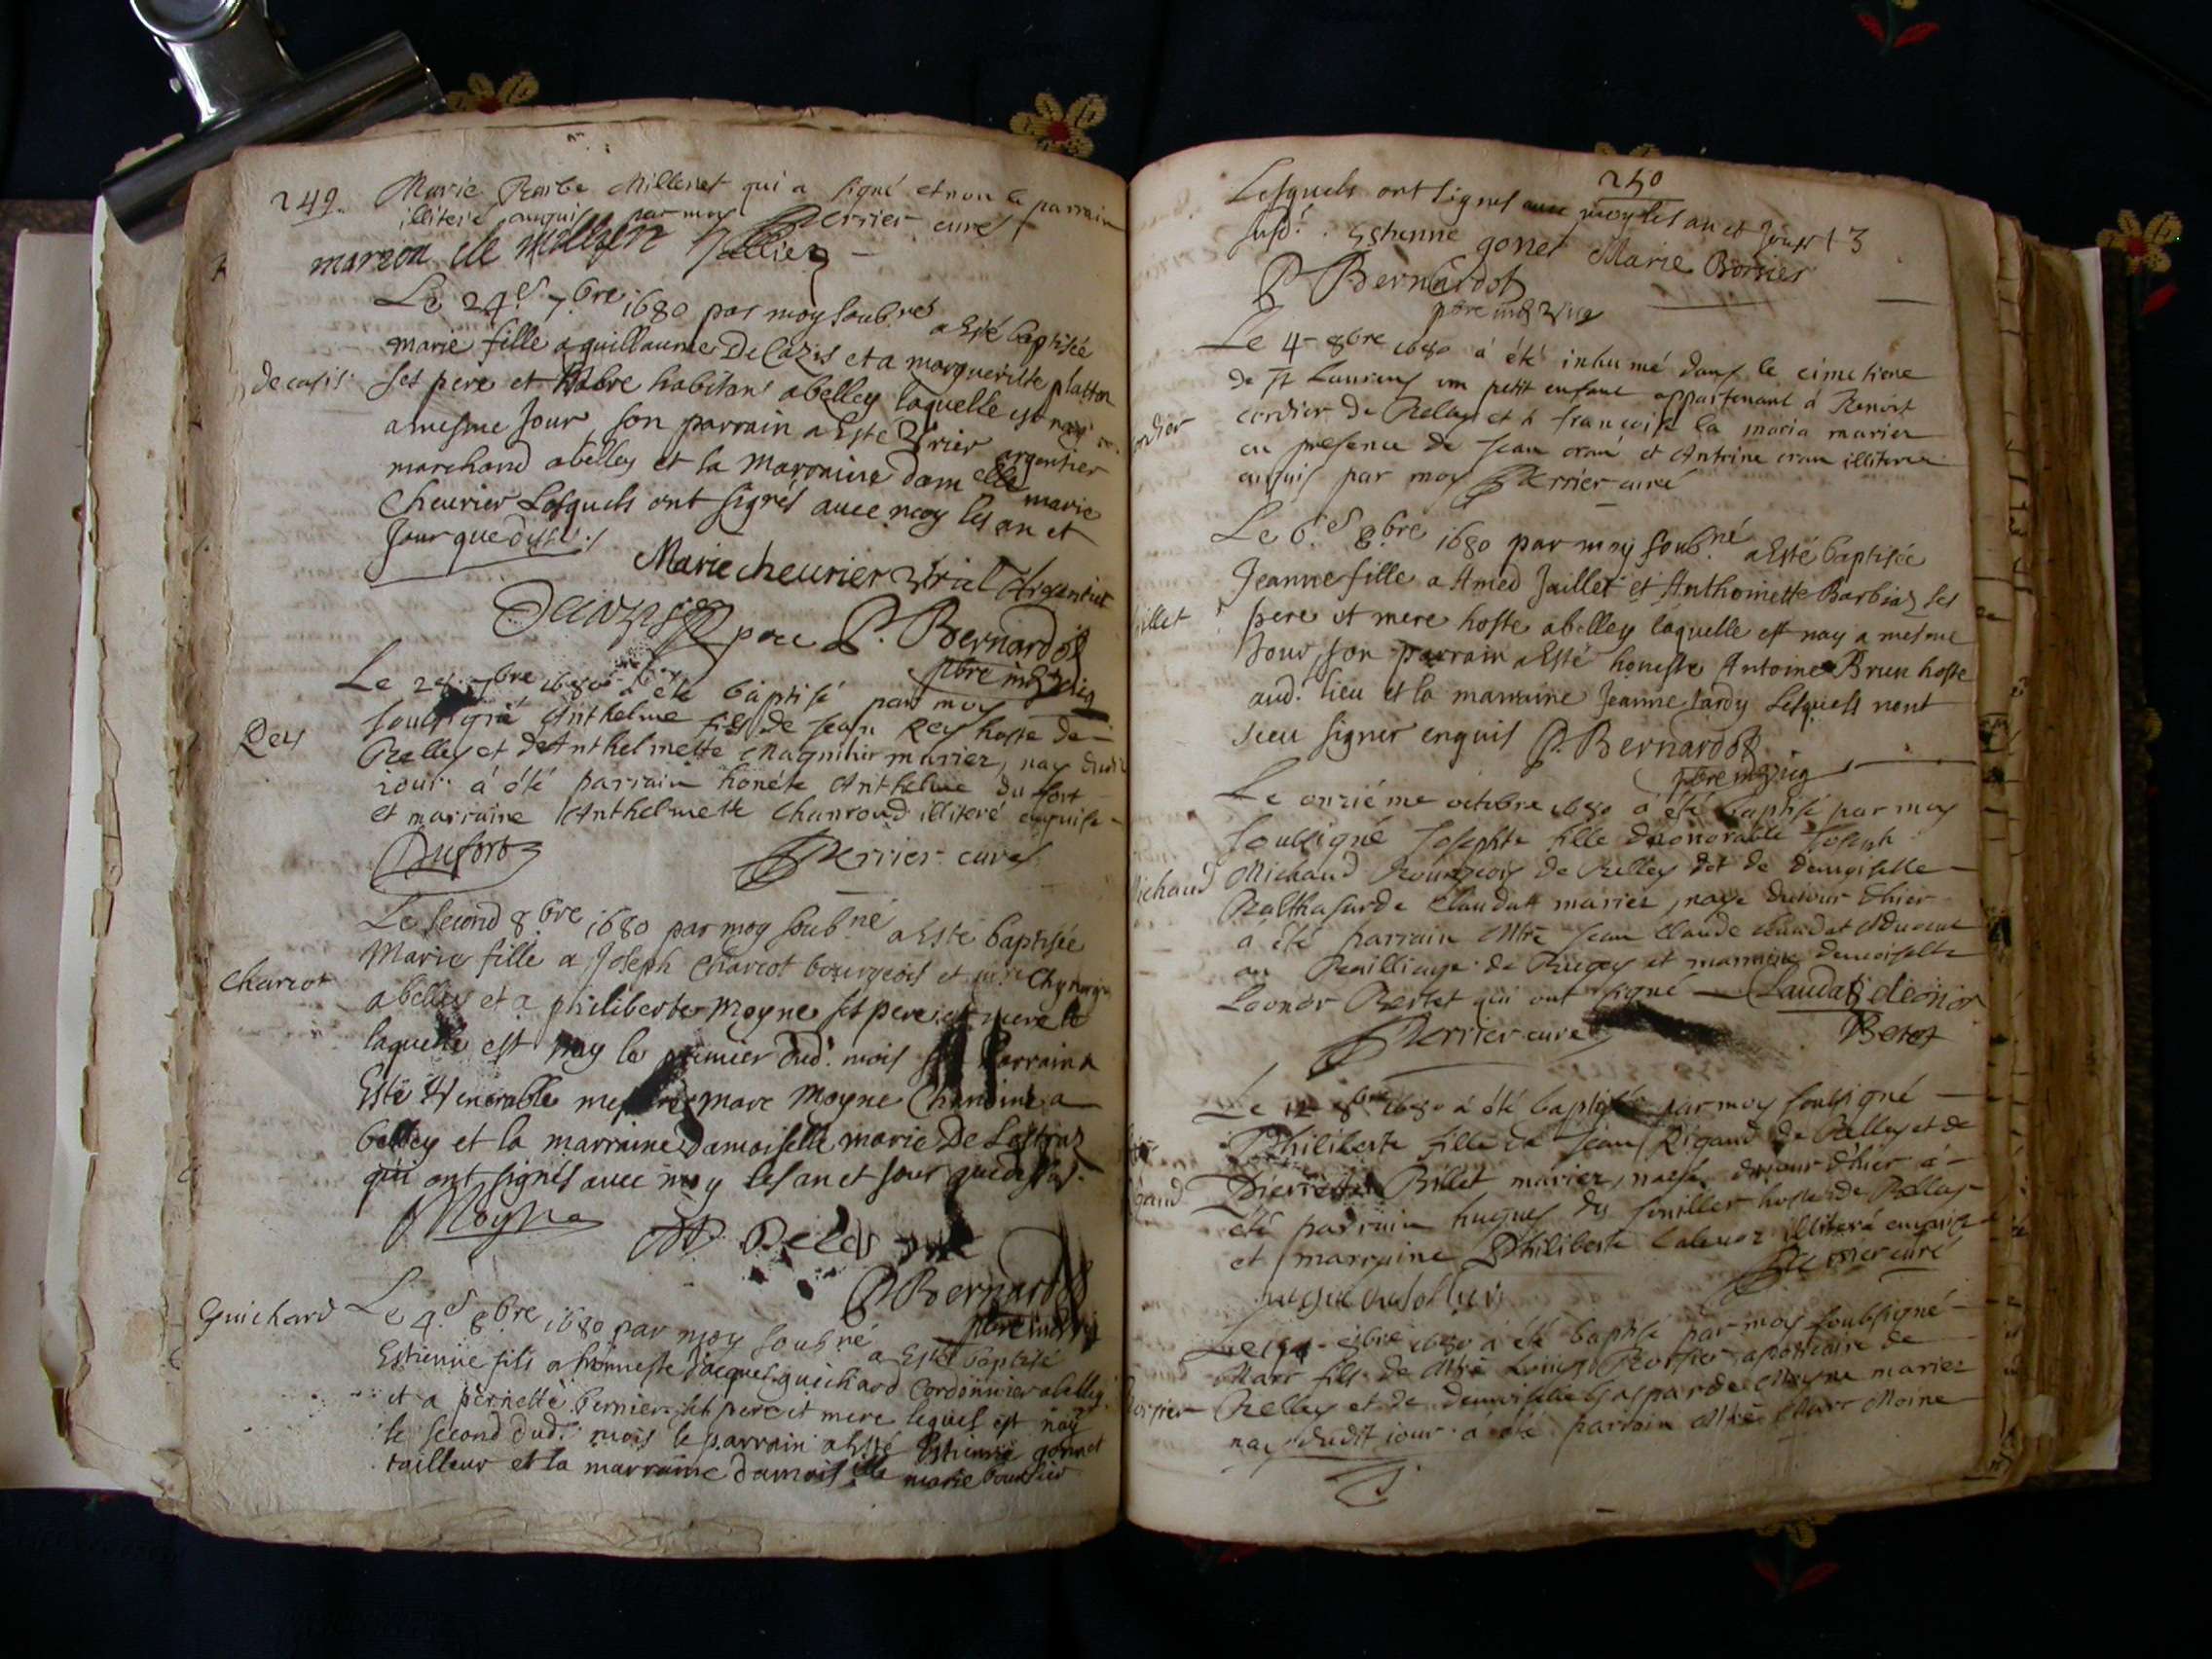 249. Marie Barbe Millenet qui a signé et non le parrain
illiteré enquis par moy Perrier curé
marion de
Le 24e 7.bre 1680 par moy soub.né a Esté baptisée
decasis
marie fille a guillaume Decazis et a marguerite platton
ses pere et mere habitans abelley laquelle est nay
a mesme jour, son parrain a Esté Vrier argentier
marchand abelley et la marraine dam.elle marie
cheurier Lesquels ont signés auec moy les an et
jour que dessus
Marie cheurier Argentier
pere P. Bernardot
pbre
Le 7bre 1680 a été baptisé par moy
Rey
soubsigné Anthelme fils de Jean Rey hoste de
Belley et de Anthelmette mariez, nay dudit
iour à été parrain honéte Anthelme du fort
et marraine Anthelmette Chanroud illiteré enquise
Dufort Perrier curé
Le second 8.bre 1680 par moy soub.né a Esté baptisée
Charcot
Marie fille a Joseph Charcot bourgeois et
abelley et a philiberte Moyne ses pere et mere
laquelle est nay le premier dud.t mois son Parrain a
Esté Venerable messire marc Moyne Chanoine a
belley et la marraine Damoiselle marie De
qui ont signés auec moy les an et jour que dessus.
Moyne
P. Bernardot
pbre
Guichard
Le 4e 8.bre 1680 par moy soub.né a Esté baptisé
Estienne fils a honneste Jacques guichard Cordonnier abelley
et a pernette bernier ses pere et mere lequel est nay
le second dud.t mois le parrain a Esté Estienne gonnet
tailleur et la marraine damoiselle marie
250
Lesquels ont signes auec moy les an et jours
susd.t Estienne gonet Marie
P. Bernardot
pbre
Le 4 8bre 1680 à été inhumé dans le cimetiere
de St Laurens un petit enfant appartenant à Benoit
cordier de Belley et a françoise la maria mariez
en presence de Jean cran et Antoine cran illiterez
enquis par moy Perrier curé
Le 6.e 8.bre 1680 par moy soub.né a Esté baptisée
Jeanne fille a Amed Jaillet et Anthoinette Barbiaz ses
pere et mere hoste abelley laquelle est nay a mesme
Jour, son parrain a Esté honeste Antoine Brun hoste
aud.t lieu et la marraine Jeanne tardy Lesquels nont
sceu signer enquis P. Bernardot
pbre
Le onziéme octobre 1680 a été baptisé par moy
soubsigné Josephte fille dhonorable Joseph
Michaud Bourgeois de Belley et de demoiselle
Balthasarde Claudat mariez, naye du iour dhier
à été parrain Mtre Jean Claude Claudat Aduocat
au Bailliage de Bugey et marraine demoiselle
Leonor Bertet qui ont signé — Claudat
Perrier curé
Le 12 8bre 1680 à été baptisé par moy soubsigné
Philiberte fille de Jean Rigaud de Belley et de
Pierrette Billet mariez, naesé du iour d'hier à
été parrain hugues du souillet hoste de Belley
et marraine Philiberte illiteré enquis
Perrier curé
Le 8bre 1680 à été baptisé par moy soubsigné
Marc fils de Mtre Louis apoticaire de
Belley et de demoiselle Gasparde Moyne mariez
nay dudit iour à été parrain Mtre Marc Moine